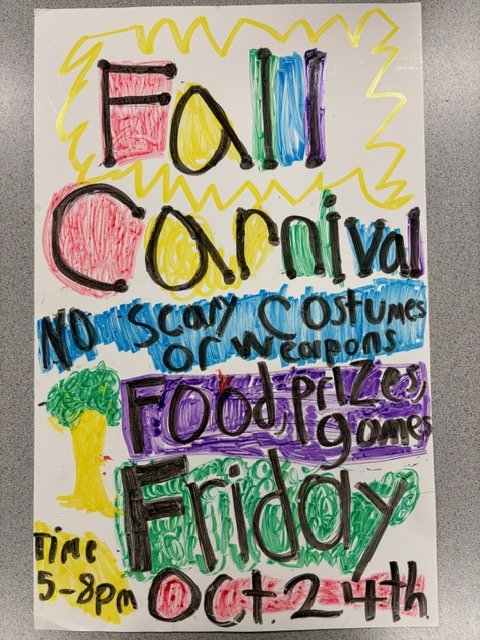 Fall
Carnival
NO Scary Costumes
or Weapons
Food, prizes,
games
Friday
Time
5-8pm
Oct. 24th